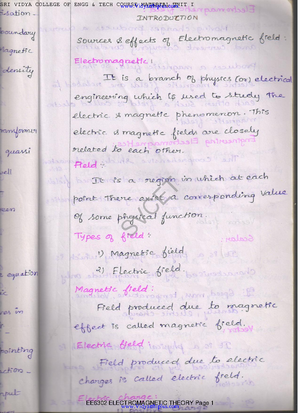 SRI VIDYA COLLEGE OF ENGG & TECH COURSE MATERIAL UNIT I
INTRODUCTION
Sources & effects of Electromagnetic field:
Electromagnetic:
It is a branch of physics (or) electrical
engineering which is used to study the
electric & magnetic phenomenon. This
electric & magnetic fields are closely
related to each other.
Field :-
It is a region in which at each
point There exist a corresponding value
of some physical function.
Types of field:
1) Magnetic field
2) Electric field
Magnetic field:
Field produced due to magnetic
effect is called magnetic field.
Electric field:
Field produced due to electric
charges is called electric field.
Electric charge:
EE6302 ELECTROMAGNETIC THEORY Page 1